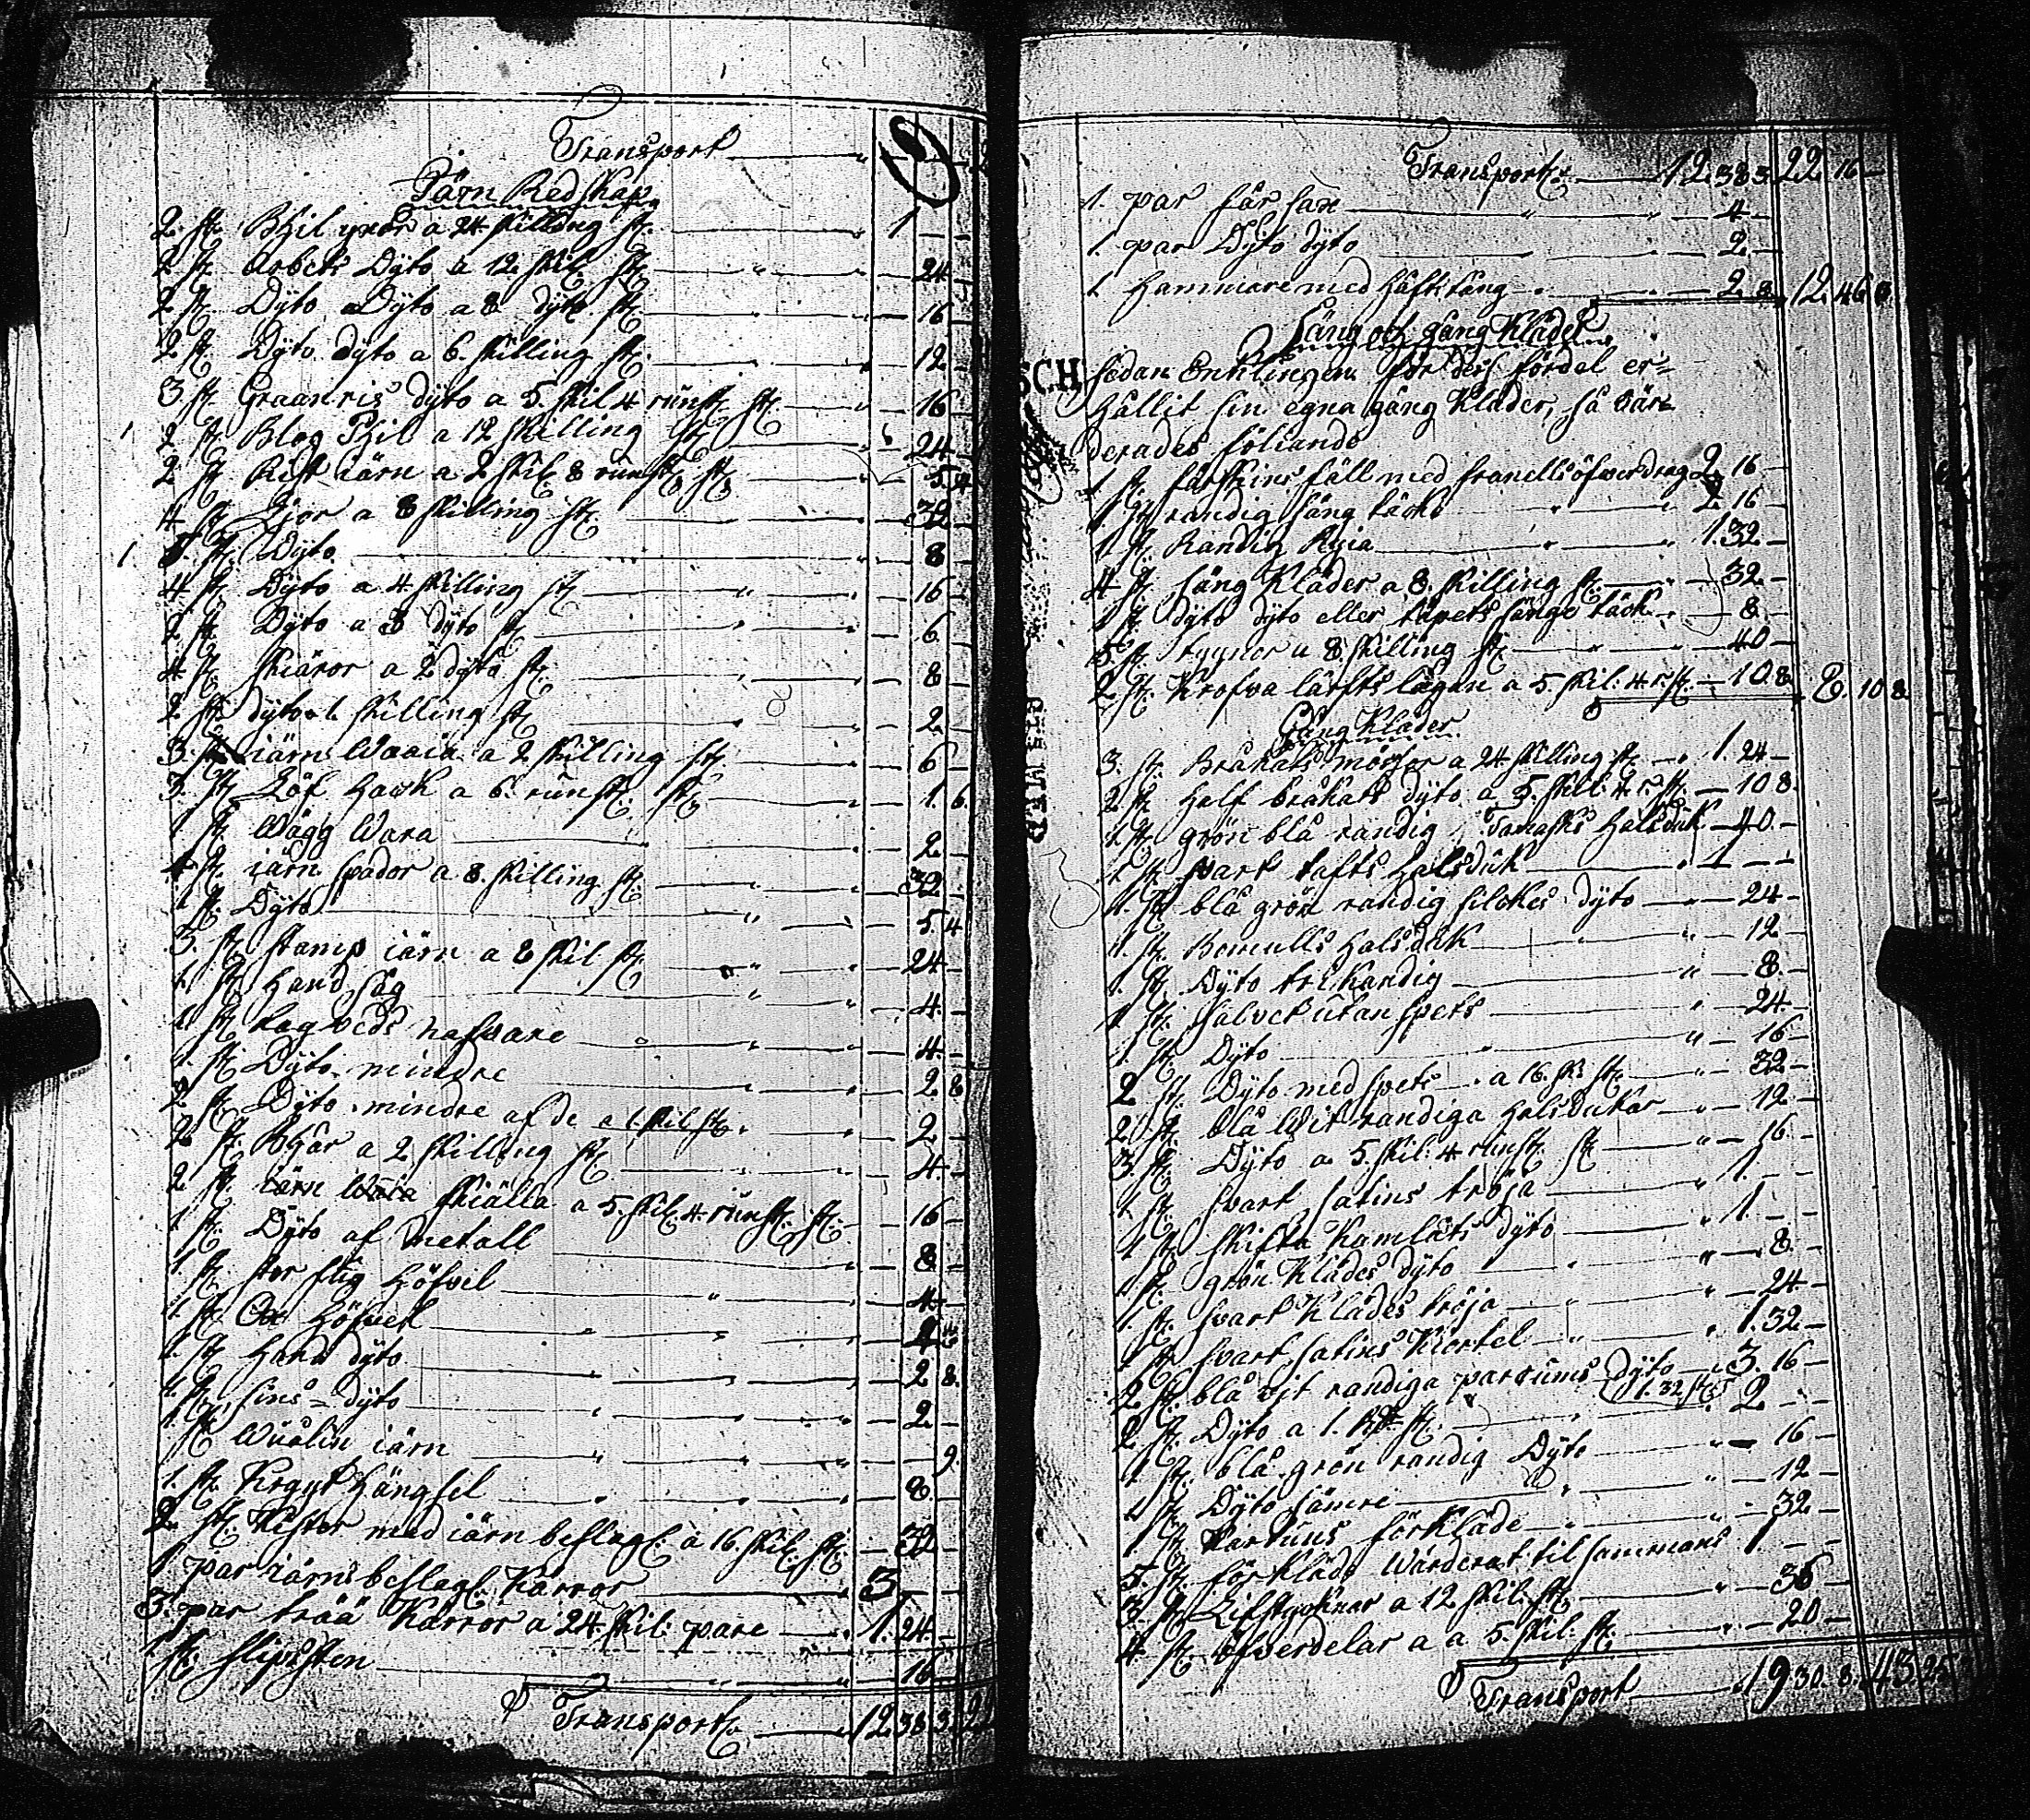 Transport
Järn Redskap
2 st. Bhil yxor a 24 skilling st. 1 - -
2 st. Arbets Dyto a 12 skil st. 24
2 st. Dyto Dyto a 8 dyto st. 16
2 st. Dyto dyto a 6. skilling st. 12
3 st. Graanris dyto a 5. skil 4 runst. st. 16
2 st. Blog Bhil a 12 skilling st. 24
2 st. Rist iärn a 2 skil 8 runst. st. 5. 4
4 st. Lior a 8 skilling st. 32
1. st. Dyto 8
4 st. Dyto a 4 skilling st. 16
2 st. Dyto a 3 dyto st. 6
4 st. skiäror a 2 dyto st. 8
2 st. dyto 1. skilling st. 2
3. st. iärn a 2 skilling st. 6
3. st. Löf Hack a 6. runst. st. 1. 6.
1 st. Wägg Wara 2
4 st. iärn spador a 8. skilling st. 32
1 st. Dyto 5. 4
3. st. stamp iärn a 8 skil st. 24
1. st. Hand såg 4
1. st. nafware 4
1. st. Dyto mindre 2 8
2. st. Dyto mindre af de a 1. skil st. 2
2 st. a 2 skilling st. 4
2 st. iärn skiälla a 5. skil 4. runst. st. 16
1 st. Dyto af metall 8
1. st. stor Höfvel 4
1. st. Höfvel
1. st. Hand dyto 2 8.
1. st. sins dyto 2
1 st. iärn 9.
1. st. Hängsel 8
2. st. Kistor med iärn beslag a 16 skil st. 32
1 par iärns beslag Kärror 3
3. par trää Kärror a 24. skil pare 1. 24
1 st. slipsten 16
Transport 12 38 3
Transport 12. 38 3. 22 16 -
1. par får sax 4
1. par Dyto dyto 2
1 Hammare med Häftång 2. 8. 12. 46
Säng och gång Kläder
sedan Enklingen för dess fördel er=
Hållit sin egna gång Kläder, så Vär=
derades föliande
1 st. fårskins fäll med franells öfwerdrag 2 16 -
1 st. randig säng täcke 2 16 -
1 st. Randig Ryia 1. 32 -
4 st. säng Kläder a 8. skilling st. 32 -
1 st. dyto dyto eller tapets sänge täck 8 -
5 st. a 8. skilling st. 40
2 st. lärfts lagan a 5. skil: 4 r: st. 10 8. 8. 10 8
Gång Kläder
3. st. Bråkats mössor a 24 skilling st. 1. 24 -
2 st. Half bråkats dyto a 5. skil: 4 r: st. 10 8.
1. st. grön blå randig Halsduk 40. -
1. st. svart tafts halsduk 1 - -
1. st. blå grön randig silckes dyto 24 -
1. st. Bomulls Halsduk 12 -
1. st. Dyto trikandig 8. -
1 st. salvet utan spets 24. -
1. st. Dyto 16 -
2 st. Dyto med spets a 16. sk. st. 32 -
2. st. blå Wit randiga Halsdukar 12. -
3. st. Dyto a 5. skil: 4 runst. st. 16 -
1. st. svart satins tröja 1. - -
1 st. skifta Kamlåts dyto 1. - -
1 st. grön Klädes dyto 8. -
1. st. svart Klädes tröja 24 -
1 st. svart satins Kiortel 1. 32 -
2 st. blå vit randiga dyto 1. 32 st. 3. 16 -
2 st. Dyto a 1. Rd. st. 2 - -
1 st. blå grön randig Dyto 16 -
1 st. Dyto sämre 12 -
1 st. Kartuns förkläde 32 -
5. st. förkläde Värderat til sammans 1 - -
3. st. Lifstycken a 12 skil: st. 36 -
4 st. öfverdelar a a 5. skil: st. 20 -
Transport 19 30. 8. 43. 25